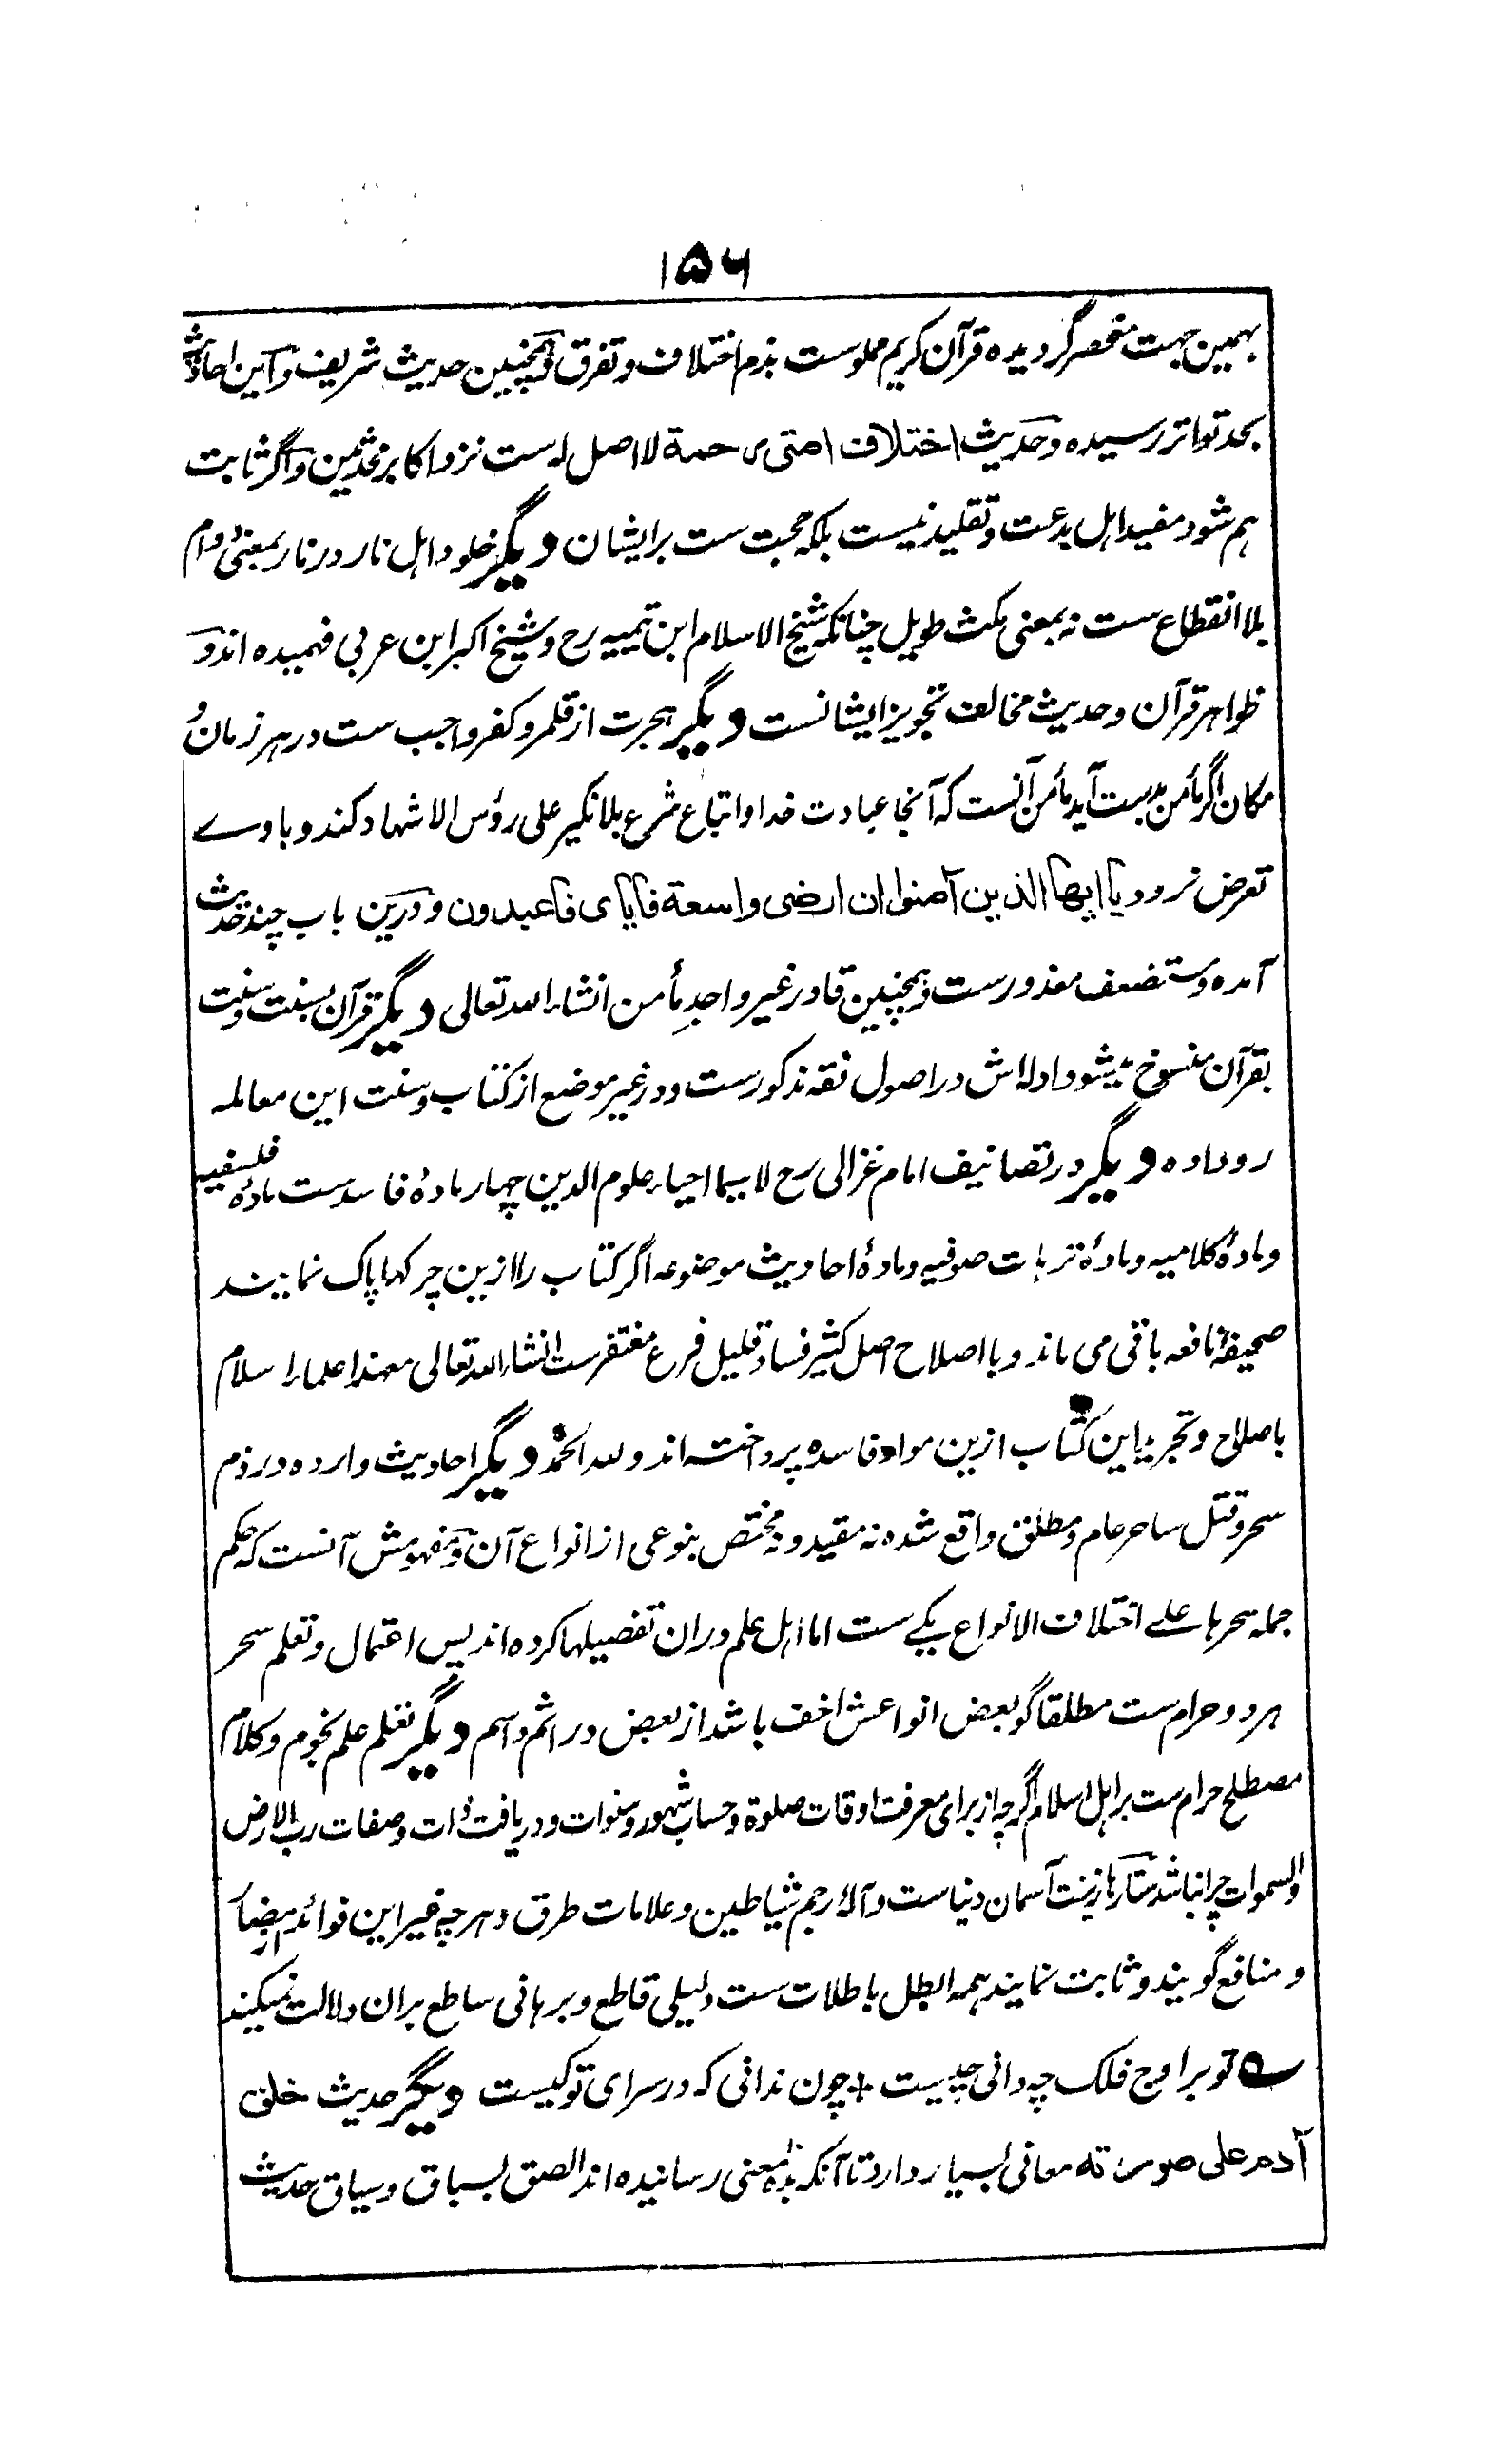 ۱۵۶
بهمین جهت منحصر گردیده قرآن کریم مملوست بذم اختلاف و تفرق و همچنین حدیث شریف و این احادیث
بحد تواتر رسیده و حدیث اختلاف امتی رحمة لا اصل له ست نزد اکابر محدثین و اگر ثابت
هم شود مفید اهل بدعت و تقلید نیست بلکه حجت ست بر ایشان دیگر خلود اهل نار در نار بمعنی دوام
بلا انقطاع ست نه بمعنی مکث طویل چنانکه شیخ الاسلام ابن تیمیه رح و شیخ اکبر ابن عربی فهمیده اند و
ظواهر قرآن و حدیث مخالف تجویز ایشانست دیگر هجرت از قلمرو کفر واجب ست در هر زمان و
مکان اگر مأمن بدست آید مأمن آنست که آنجا عبادت خدا و اتباع شرع بلا نکیر علی رؤس الاشهاد کند و با وے
تعرض نرود یا ایها الذین آمنوا ان ارضی واسعة فایای فاعبدون و درین باب چند حدیث
آمده و مستضعف معذورست و همچنین قادر غیر واجد مأمن انشاء الله تعالی دیگر قرآن بسنت و سنت
بقرآن منسوخ میشود و ادله اش در اصول فقه مذکورست و در غیر موضع از کتاب و سنت این معامله
روداده دیگر در تصانیف امام غزالی رح لا سیما احیاء علوم الدین چهار مادهٔ فاسدست مادهٔ فلسفیه
و مادهٔ کلامیه و مادهٔ ترهات صوفیه و مادهٔ احادیث موضوعه اگر کتاب را ازین چرکها پاک نمایند
صحیفهٔ نافعه باقی می ماند و با اصلاح اصل کثیر فساد قلیل فرع مغتفرست انشاء الله تعالی معهذا علماء اسلام
باصلاح و تجرید این کتاب ازین مواد فاسده پرداخته اند و لله الحمد دیگر احادیث وارده در ذم
سحر و قتل ساحر عام و مطلق واقع شده نه مقید و نه مختص بنوعی از انواع آن و مفهومش آنست که حکم
جمله سحرها علے اختلاف الانواع یکے ست اما اهل علم دران تفصیلها کرده اند پس اعتمال و تعلم سحر
هر دو حرام ست مطلقا گو بعض انواعش اخف باشد از بعض در اثم و اسم دیگر تعلم علم نجوم و کلام
مصطلح حرام ست بر اهل اسلام اگرچه از برای معرفت اوقات صلوة و حساب شهور و سنوات و دریافت ذات و صفات رب الارض
والسموات چرا نباشد ستارها زینت آسمان دنیاست و آلهٔ رجم شیاطین و علامات طرق و هر چه غیر این فوائد از مضار
و منافع گویند و ثابت نمایند همه ابطل باطلات ست دلیلی قاطع و برهانی ساطع بران دلالت نمیکند
ے تو بر اوج فلک چه دانی چیست + چون ندانی که در سرای تو کیست دیگر حدیث خلق
آدم علی صورته معانی بسیار دارد تا آنکه معنی رسانیده اند الصق بسباق و سیاق حدیث